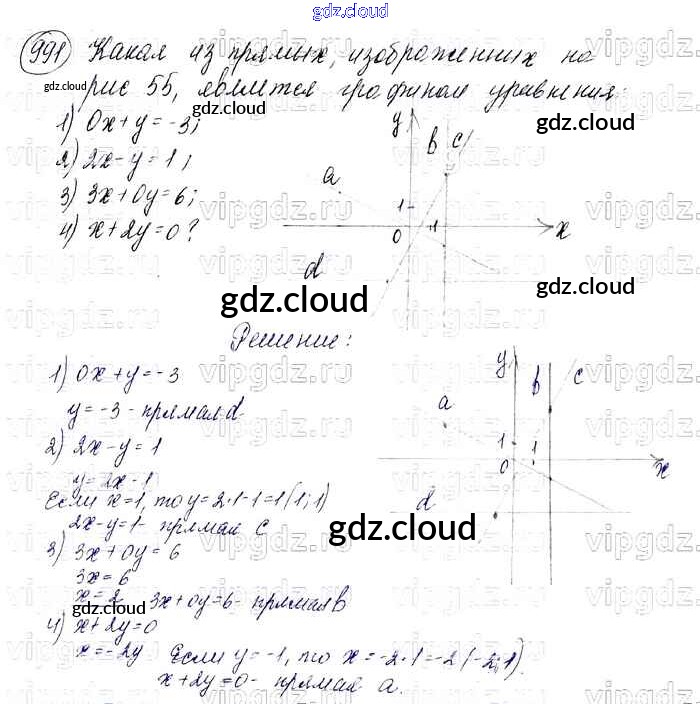 gdz.cloud
991) Какая из прямых, изображенных на
рис 55, является графиком уравнения:
1) 0x+y=-3;
2) 2x-y=1;
3) 3x+0y=6;
4) x+2y=0?
y b c
a
1
0 1 x
d
gdz.cloud
Решение:
1) 0x+y=-3
y=-3 - прямая d
2) 2x-y=1
y=2x-1
Если x=1, то y=2·1-1=1 (1;1)
2x-y=1- прямая c
3) 3x+0y=6
3x=6
x=2 3x+0y=6- прямая b
4) x+2y=0
x=-2y Если y=-1, то x=-2·1=-2 (-2;1).
x+2y=0- прямая a.
y b c
a
1
0 1 x
d
gdz.cloud
vipgdz.ru